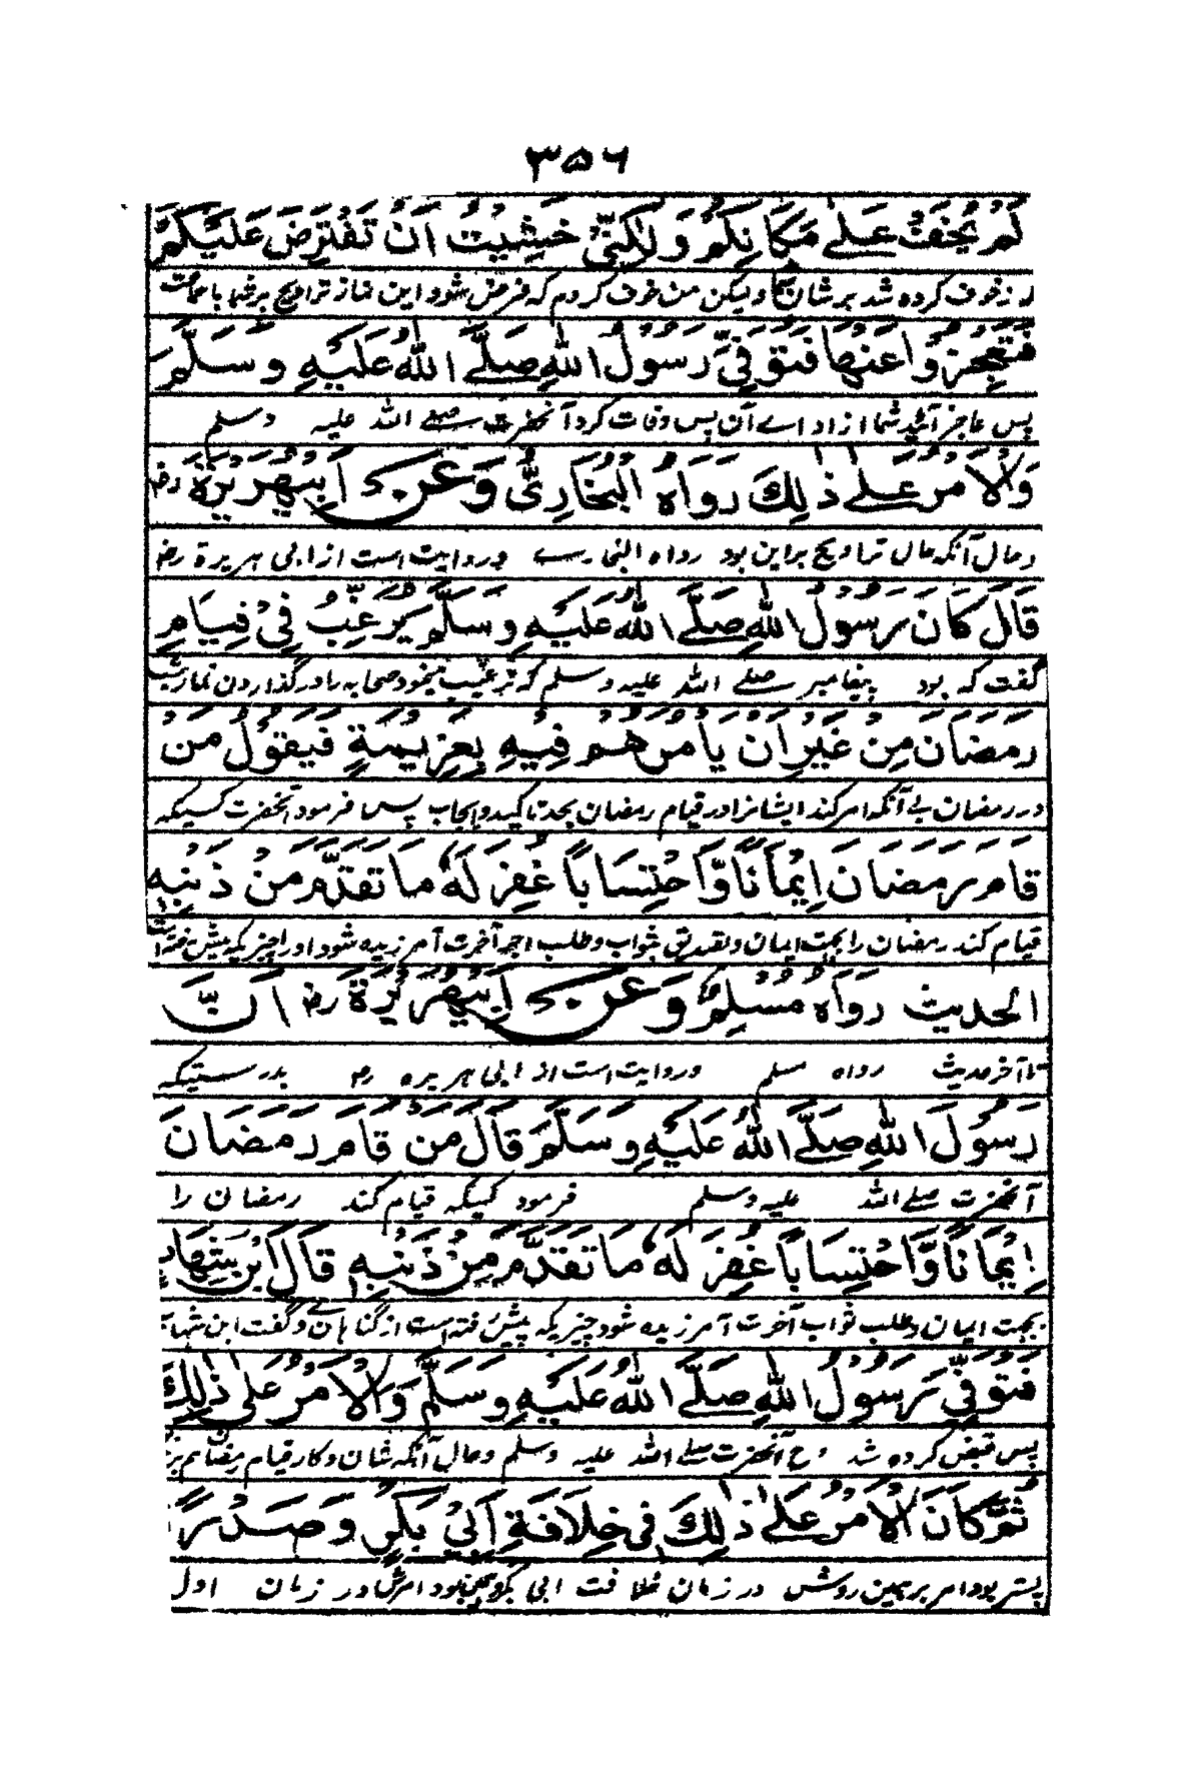 ۳۵۶
لَمْ يُخَفْ عَلٰى مَكَانِكُمْ وَلٰكِنِّىْ خَشِيْتُ اَنْ تَفْتَرِضَ عَلَيْكُمْ
خوف كرده شد بر شان شما وليكن من خوف كردم كه فرض شود اين نماز تراويح بر شما با جماعت
فَتَعْجِزُوْا عَنْهَا فَتُوُفِّىَ رَسُوْلُ اللّٰهِ صَلَّے اللّٰهُ عَلَيْهِ وَسَلَّمَ
پس عاجز آئيد شما از اداے آن پس وفات كرد آنحضرت صلے الله عليه وسلم
وَالْاَمْرُ عَلٰے ذٰلِكَ رَوَاهُ الْبُخَارِىُّ وَعَنْ اَبِىْ هُرَيْرَةَ رض
وحال آنكه حال تراويح براين بود رواه وروايت است از ابى هريرة رض
قَالَ كَانَ رَسُوْلُ اللّٰهِ صَلَّے اللّٰهُ عَلَيْهِ وَسَلَّمَ يُرَغِّبُ فِىْ قِيَامِ
گفت كه بود پيغامبر صلے الله عليه وسلم كه ترغيب ميخود صحابه را در گذاردن نماز
رَمَضَانَ مِنْ غَيْرِ اَنْ يَّأْمُرَهُمْ فِيْهِ بِعَزِيْمَةٍ فَيَقُوْلُ مَنْ
در رمضان بے آنكه امر كند ايشانرا در قيام رمضان بجد تاكيد و ايجاب پس فرمود آنحضرت كسيكه
قَامَ رَمَضَانَ اِيْمَانًا وَّاحْتِسَابًا غُفِرَ لَهٗ مَا تَقَدَّمَ مِنْ ذَنْبِهٖ
قيام كند رمضان را بجهت ايمان وتصديق بثواب وطلب اجر آخرت آمرزيده شود اورا چيزيكه پيش رفته است
الحديث رَوَاهُ مُسْلِمٌ وَعَنْ اَبِىْ هُرَيْرَةَ رض اَنَّ
تا آخر حديث رواه مسلم وروايت است از ابى هريره رض بدرستيكه
رَسُوْلَ اللّٰهِ صَلَّے اللّٰهُ عَلَيْهِ وَسَلَّمَ قَالَ مَنْ قَامَ رَمَضَانَ
آنحضرت صلے الله عليه وسلم فرمود كسيكه قيام كند رمضان را
اِيْمَانًا وَّاحْتِسَابًا غُفِرَ لَهٗ مَا تَقَدَّمَ مِنْ ذَنْبِهٖ قَالَ ابْنُ شِهَاب
بجهت ايمان وطلب ثواب آخرت آمرزيده شود چيزيكه پيش رفته است از گناهان وگفت ابن شهاب
فَتُوُفِّىَ رَسُوْلُ اللّٰهِ صَلَّے اللّٰهُ عَلَيْهِ وَسَلَّمَ وَالْاَمْرُ عَلٰى ذٰلِكَ
پس قبض كرده شد روح آنحضرت صلے الله عليه وسلم وحال آنكه شان وكار قيام رمضان
ثُمَّ كَانَ الْاَمْرُ عَلٰے ذٰلِكَ فِىْ خِلَافَةِ اَبِىْ بَكْرٍ وَصَدْرًا
پستر بود امر بر همين روش در زمان خلافت ابى بكر وهمين بود امرش در زمان اول